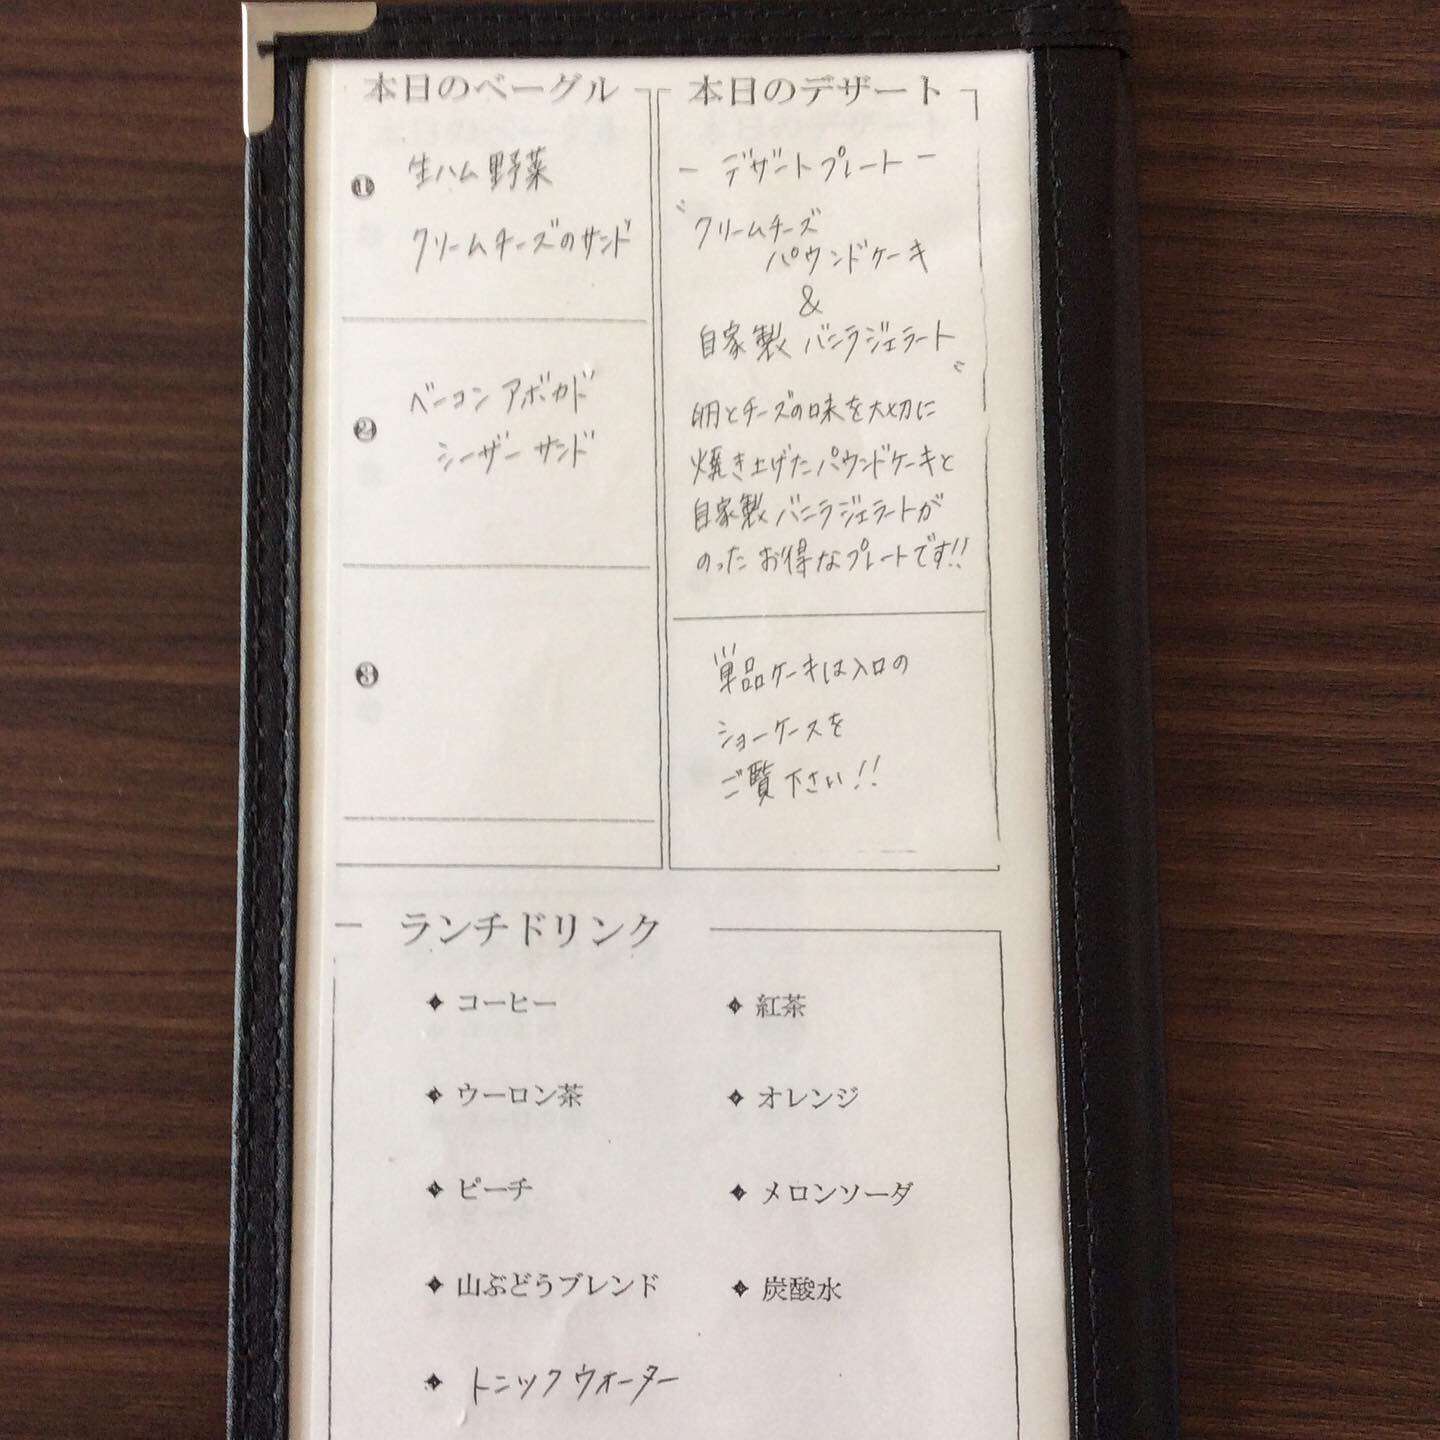 本日のベーグル
❶ 生ハム野菜
クリームチーズのサンド
❷ ベーコンアボカド
シーザーサンド
❸
本日のデザート
－デザートプレート－
〝クリームチーズ
パウンドケーキ
&
自家製バニラジェラート〟
卵とチーズの味を大切に
焼き上げたパウンドケーキと
自家製バニラジェラートが
のったお得なプレートです!!
単品ケーキは入口の
ショーケースを
ご覧下さい!!
ランチドリンク
コーヒー
紅茶
ウーロン茶
オレンジ
ピーチ
メロンソーダ
山ぶどうブレンド
炭酸水
トニックウォーター